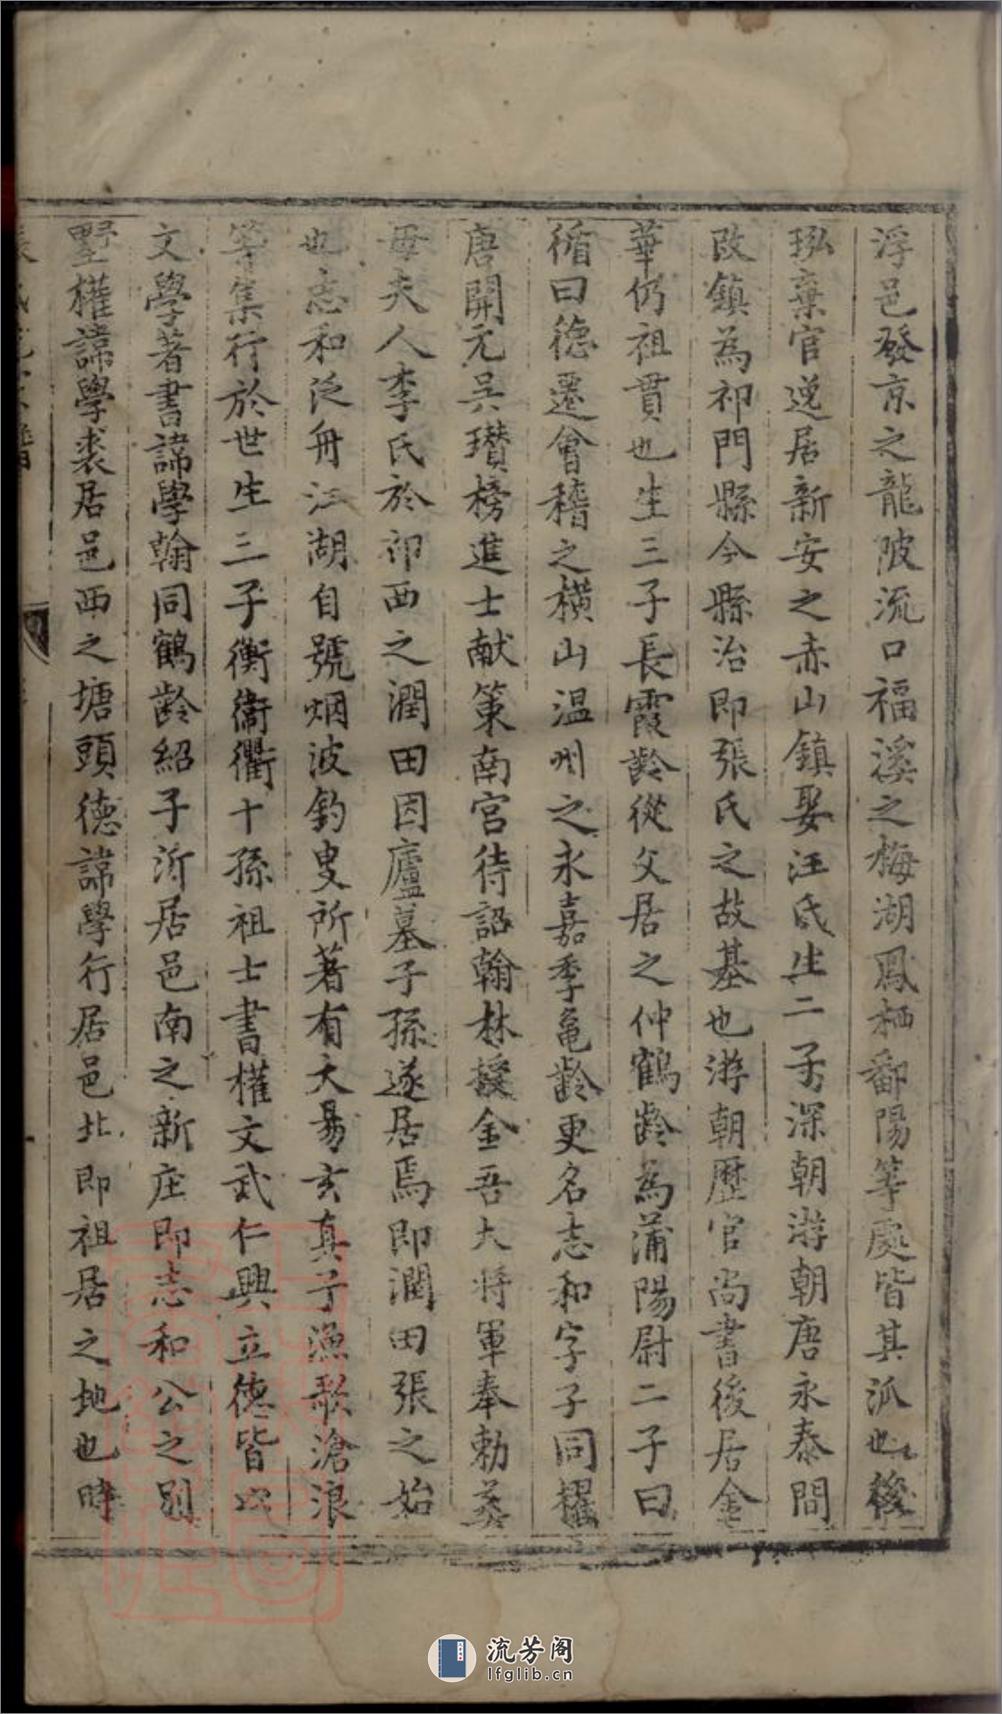 浮邑發京之龍陂流口福溪之梅湖鳳栖鄱陽等處皆其派也後
珌棄官逸居新安之赤山鎮娶汪氏生二子深朝游朝唐永泰間
改鎮為祁門縣今縣治即張氏之故基也游朝歷官尚書後居金
華仍祖貫也生三子長霞齡從父居之仲鶴齡為蒲陽尉二子曰
循曰德遷會稽之橫山温州之永嘉季龜齡更名志和字子同擢
唐開元吴瓉榜進士献策南宮待詔翰林授金吾大將軍奉勅葬
母夫人李氏於祁西之潤田因廬墓子孫遂居焉即潤田張之始
也志和泛舟江湖自號烟波釣叟所著有大易玄真子漁歌滄浪
等集行於世生三子衡衛衢十孫祖士書權文武仁興立德皆以
文學著書諱學翰同鶴齡紹子沂居邑南之新庄即志和公之别
墅權諱學裘居邑西之塘頭德諱學行居邑北即祖居之地也時
流芳阁
lfglib.cn